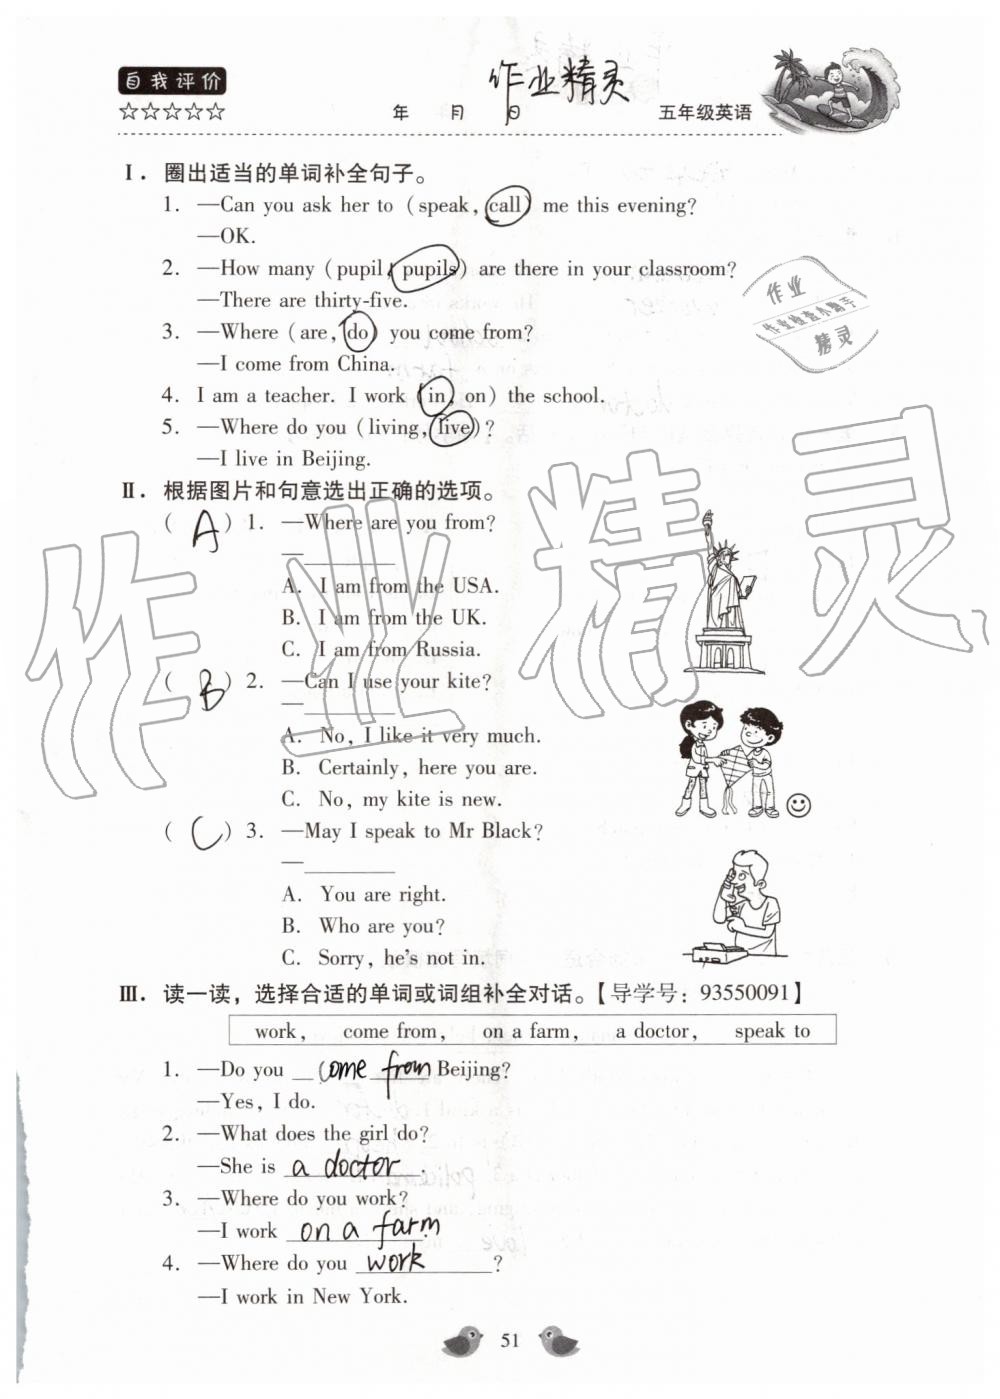 自我评价
作业精灵
☆☆☆☆☆ 年 月 日 五年级英语
Ⅰ. 圈出适当的单词补全句子。
1. —Can you ask her to (speak, call) me this evening?
—OK.
2. —How many (pupil, pupils) are there in your classroom?
—There are thirty-five.
3. —Where (are, do) you come from?
—I come from China.
4. I am a teacher. I work (in, on) the school.
5. —Where do you (living, live)?
—I live in Beijing.
作业
作业检查小帮手
精灵
Ⅱ. 根据图片和句意选出正确的选项。
( A ) 1. —Where are you from?
—__________
A. I am from the USA.
B. I am from the UK.
C. I am from Russia.
( B ) 2. —Can I use your kite?
—__________
A. No, I like it very much.
B. Certainly, here you are.
C. No, my kite is new.
( C ) 3. —May I speak to Mr Black?
—__________
A. You are right.
B. Who are you?
C. Sorry, he's not in.
作业精灵
Ⅲ. 读一读，选择合适的单词或词组补全对话。【导学号：93550091】
work, come from, on a farm, a doctor, speak to
1. —Do you come from Beijing?
—Yes, I do.
2. —What does the girl do?
—She is a doctor.
3. —Where do you work?
—I work on a farm.
4. —Where do you work?
—I work in New York.
51